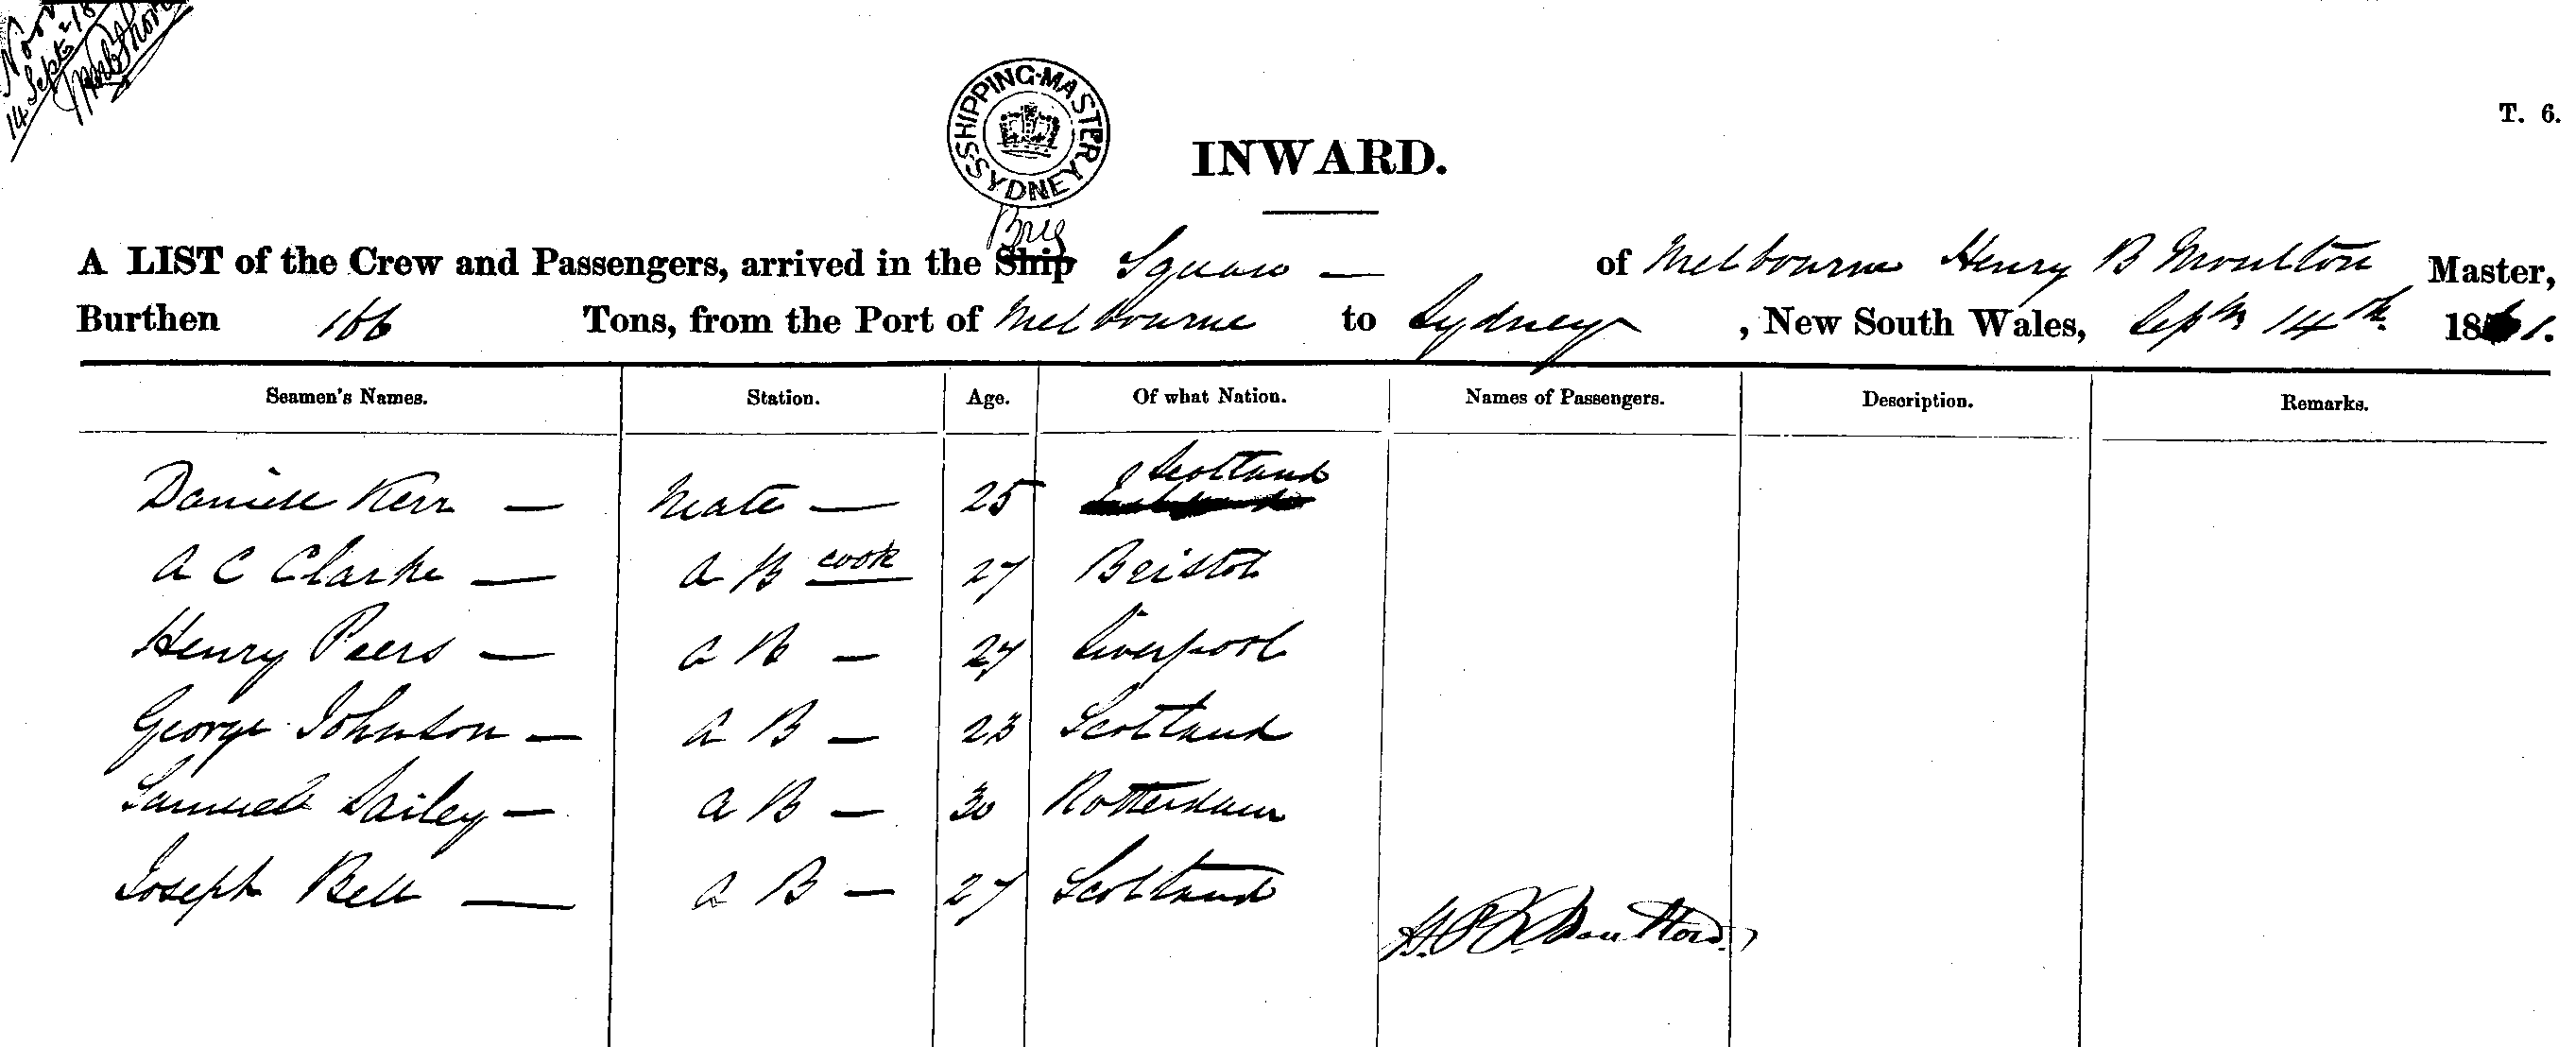 Noon
14 Sept 18
SHIPPING-MASTERS-SYDNEY
T. 6.
INWARD.
Brig
A LIST of the Crew and Passengers, arrived in the Ship of Melbourne Henry B Moulton Master,
Burthen 186 Tons, from the Port of Melbourne to Sydney, New South Wales, Sepr 14th 1861.
Seamen's Names. Station. Age. Of what Nation. Names of Passengers. Description. Remarks.
Daniell Kerr — Mate — 25 Scotland
A C Clarke — A B cook 27 Bristol
Henry Peers — A B — 27 Liverpool
George Johnson — A B — 23 Scotland
Samuel Dailey — A B — 30 Rotterdam
Joseph Bell — A B — 27 Scotland
Moulton